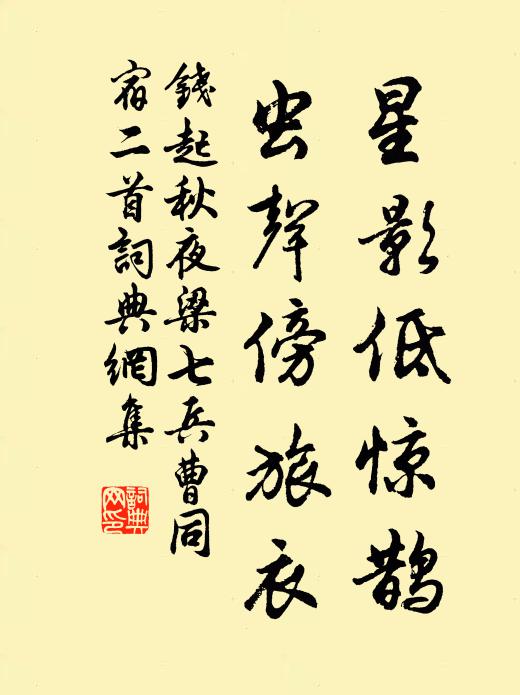 星影低惊鹊
虫聲傍旅衣
錢起秋夜梁七兵曹同
宿二首詞典網集
詞典
网印